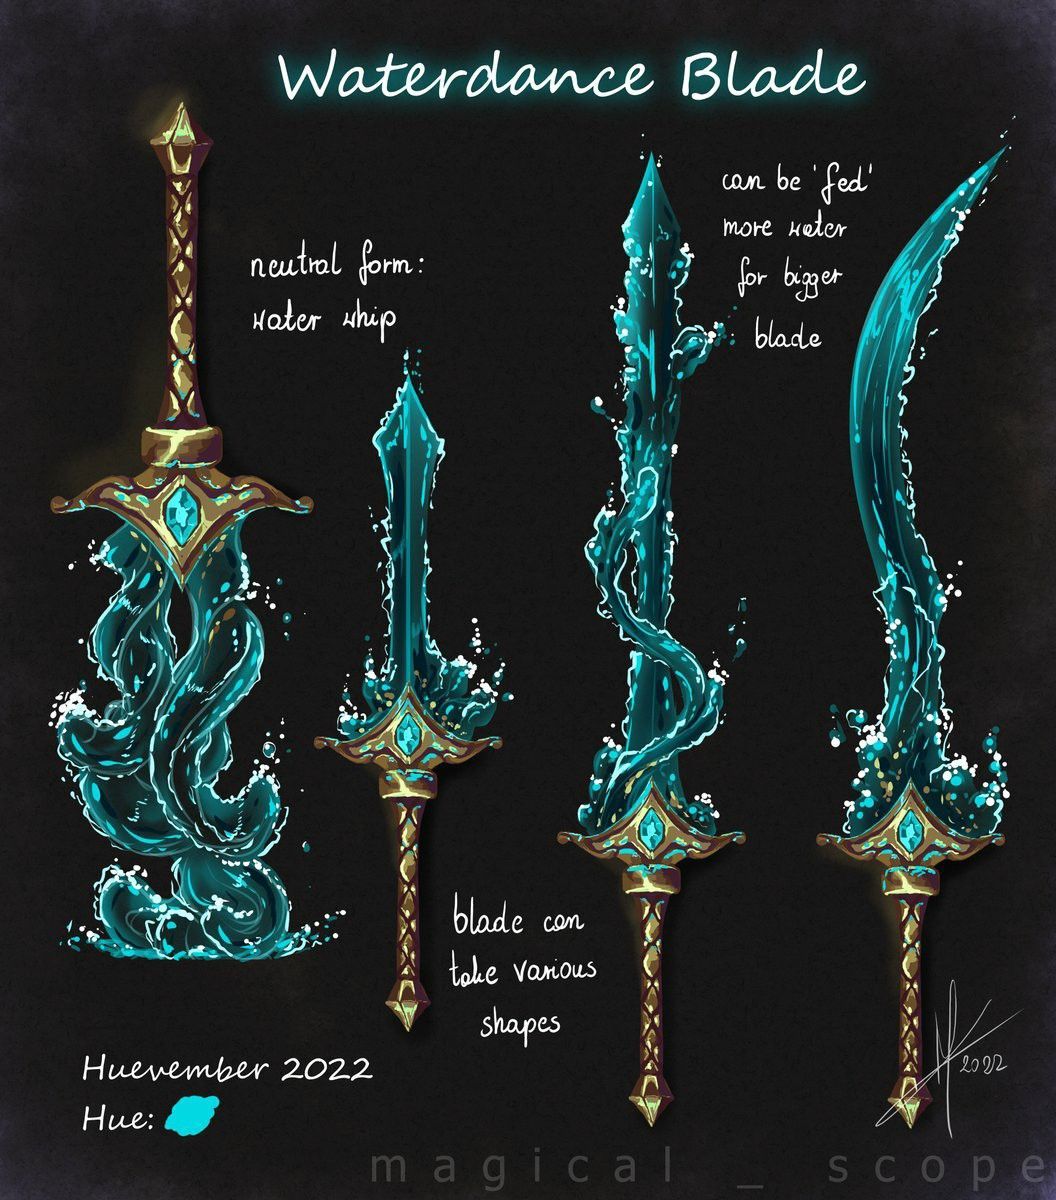 Waterdance Blade
neutral form:
water whip
can be 'fed'
more water
for bigger
blade
blade can
take various
shapes
Huevember 2022
Hue:
2022
magical _ scope